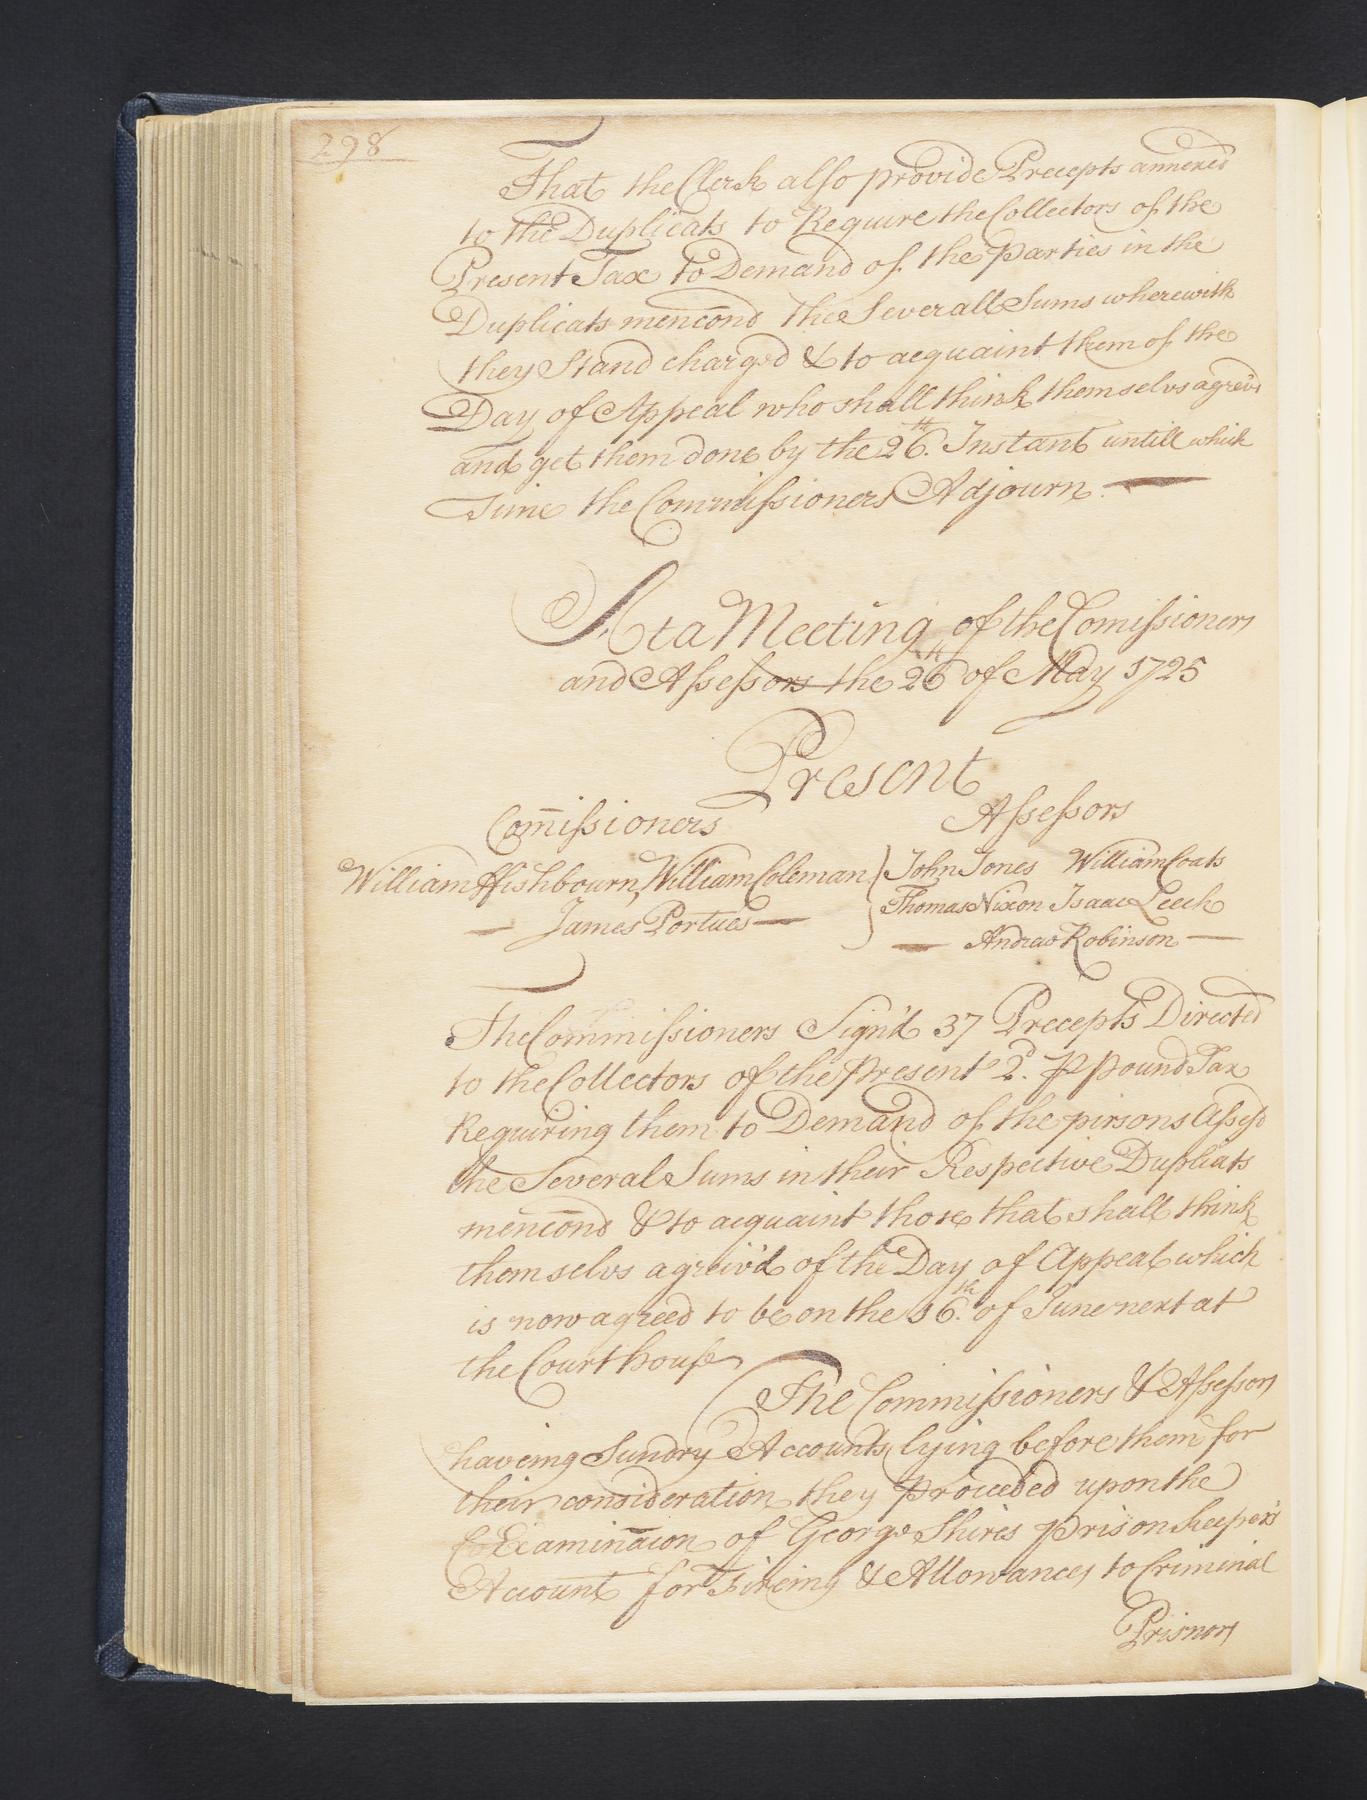 298
That the Clerk also provide Precepts annexed
to the Duplicats to Require the Collectors of the
Present Tax to Demand of the Parties in the
Duplicats mencōnd the Severall Sums wherewith
they Stand charged & to acquaint them of the
Day of Appeal who shall think themselvs agreivd
and get them done by the 26th. Instant untill which
Time the Commissioners Adjourn.
At a Meeting of the Comissioners
and Assessors the 26th of May 1725
Present
Com̄issioners Assessors
William Fishbourn, William Coleman John Jones William Coats
James Portues Thomas Nixon Isaac Leech
Andrao Robinson
The Commissioners Sign'd 37 Precepts Directed
to the Collectors of the Present 2d. ⅌ pound Tax
Requiring them to Demand of the pirsons Assesd
the Several Sums in their Respective Duplicats
mencōnd & to acquaint those that shall think
themselvs agreiv'd of the Day of Appeal which
is now agreed to be on the 16th. of June next at
the Court house
The Commissioners & Assessors
haveing Sundry Accounts lying before them for
their consideration they proceeded upon the
Examinācon of George Shires prison keeper's
Account for Fireing & Allowances to Criminal
Prisnors